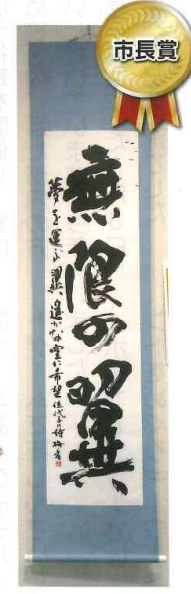 市長賞
無限の翼
夢を運ぶ翼、遙かな空に希望